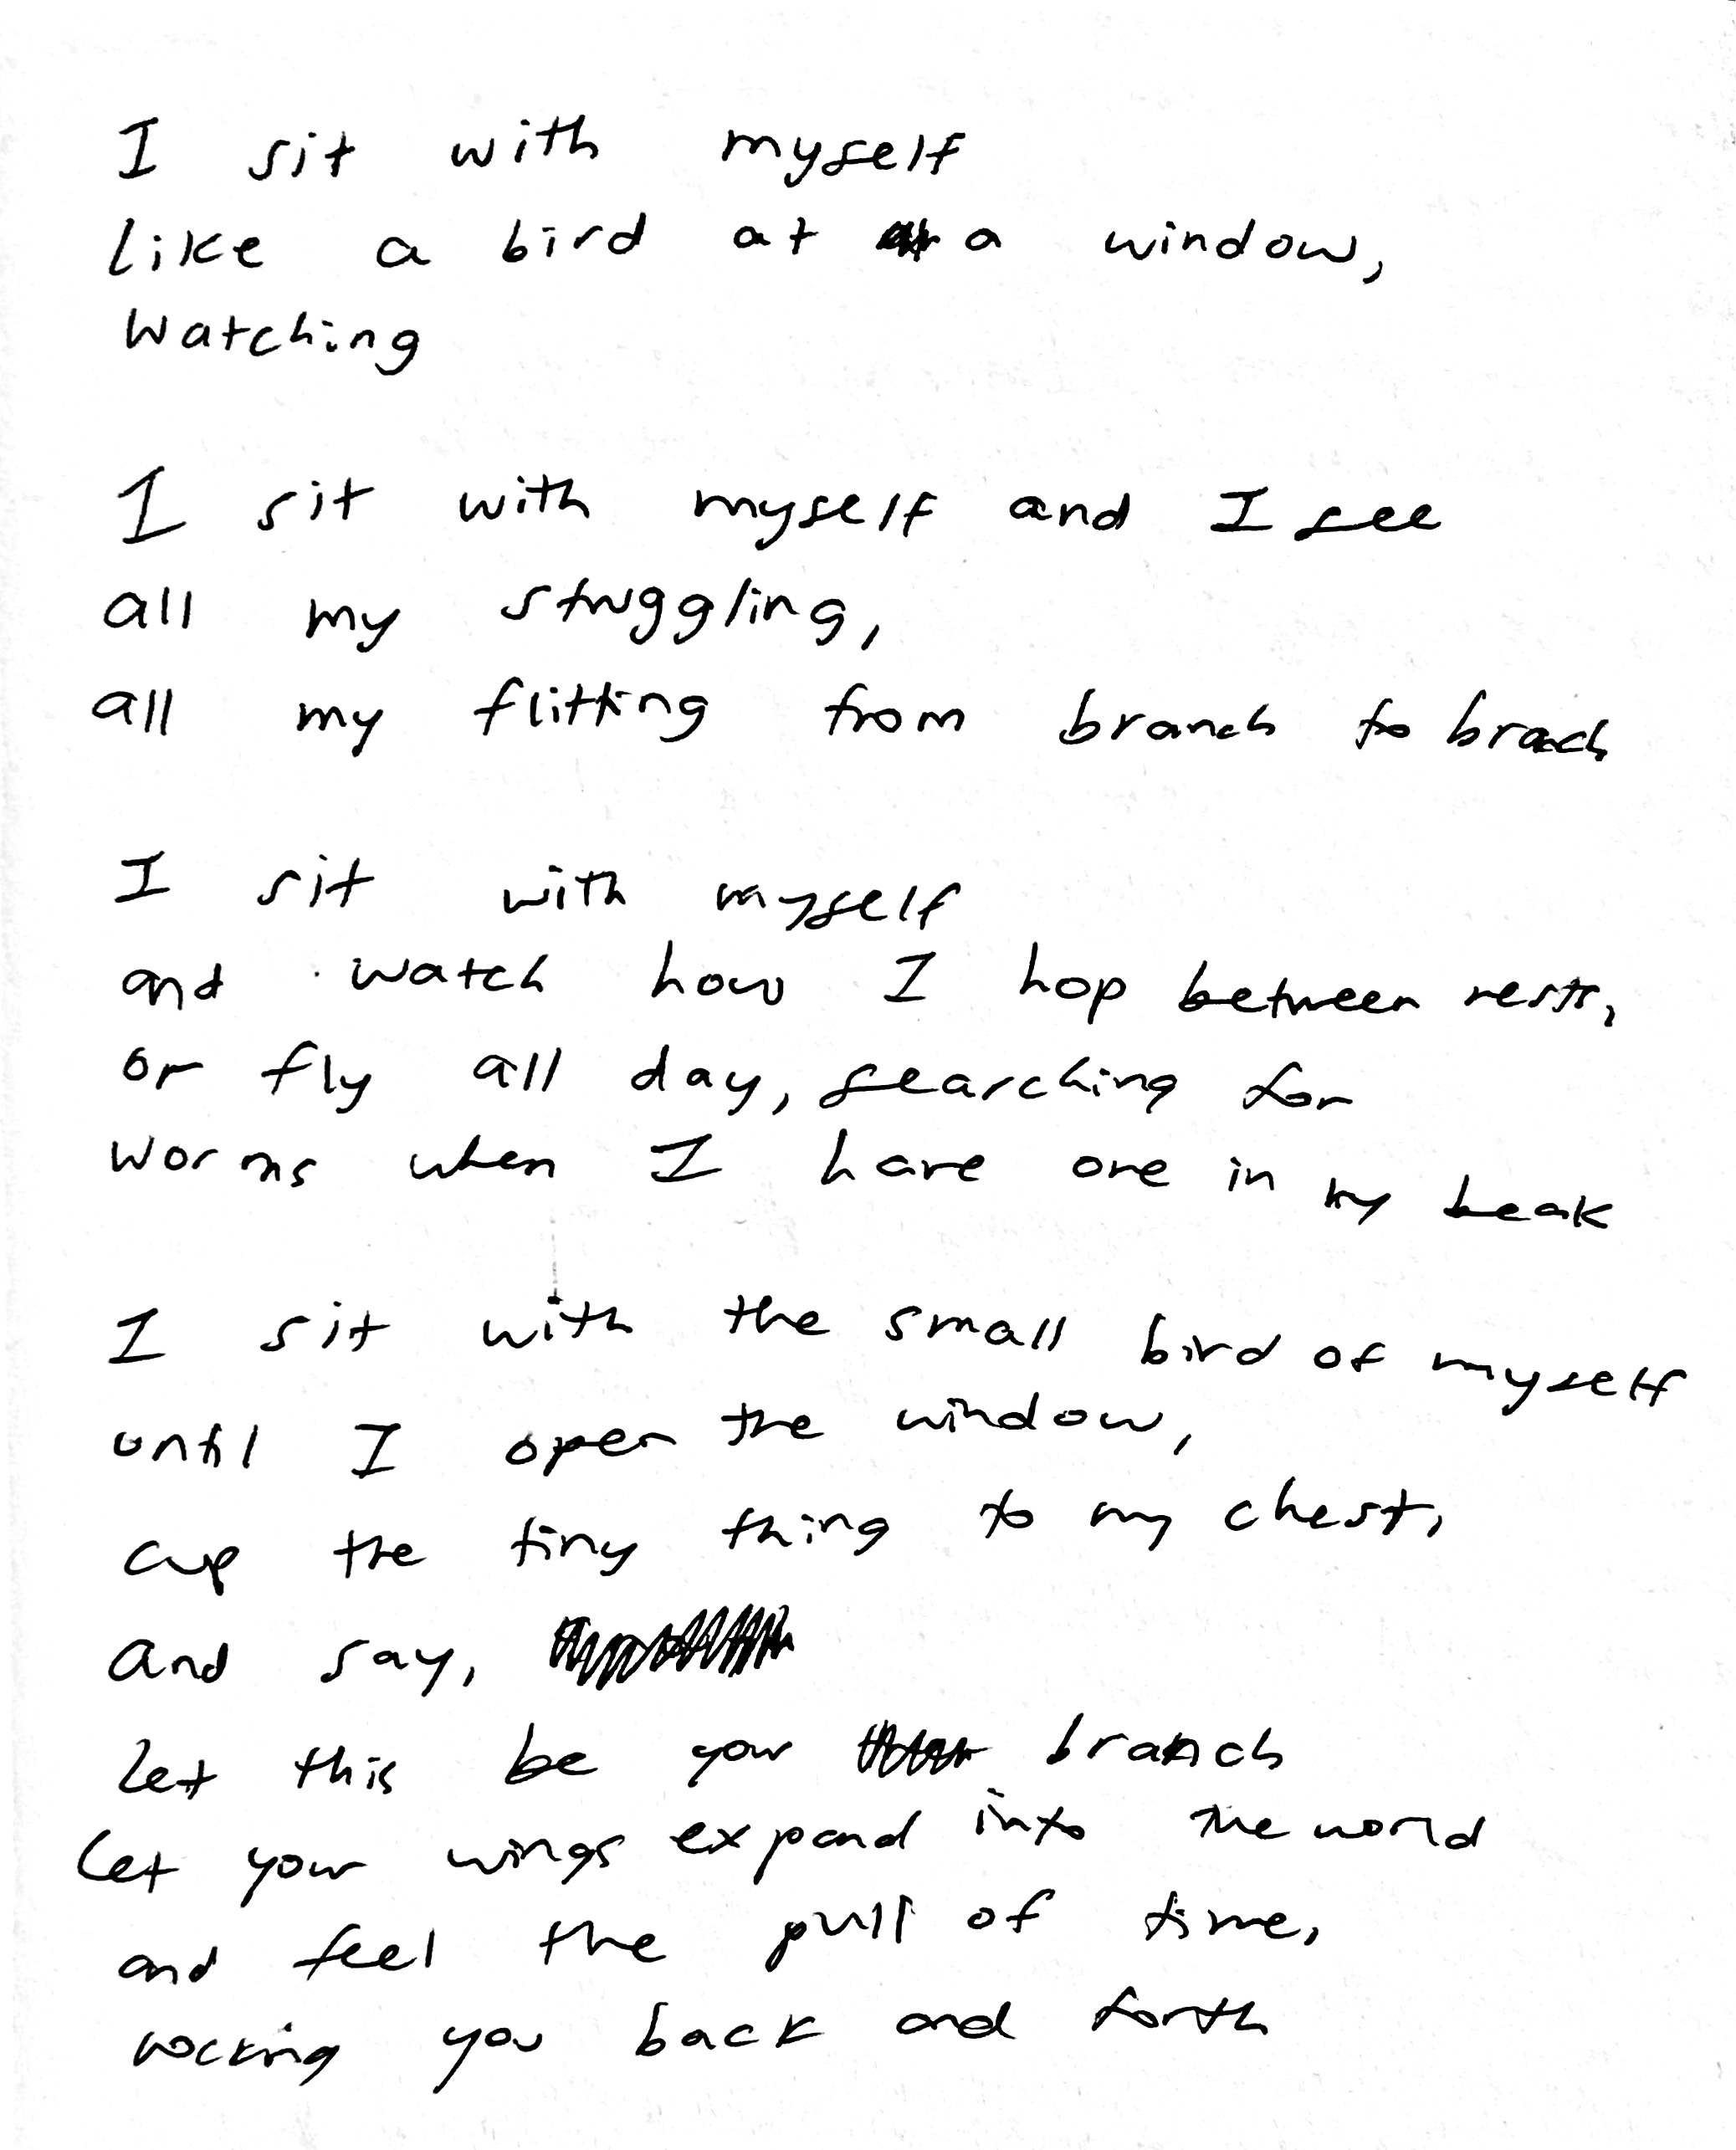 I sit with myself
like a bird at a window,
Watching
I sit with myself and I see
all my struggling,
all my flitting from branch to branch
I sit with myself
and watch how I hop between rests,
or fly all day, searching for
worms when I have one in my beak
I sit with the small bird of myself
until I open the window,
cup the tiny thing to my chest,
and say,
Let this be your branch
Let your wings expand into the world
and feel the pull of time,
rocking you back and forth